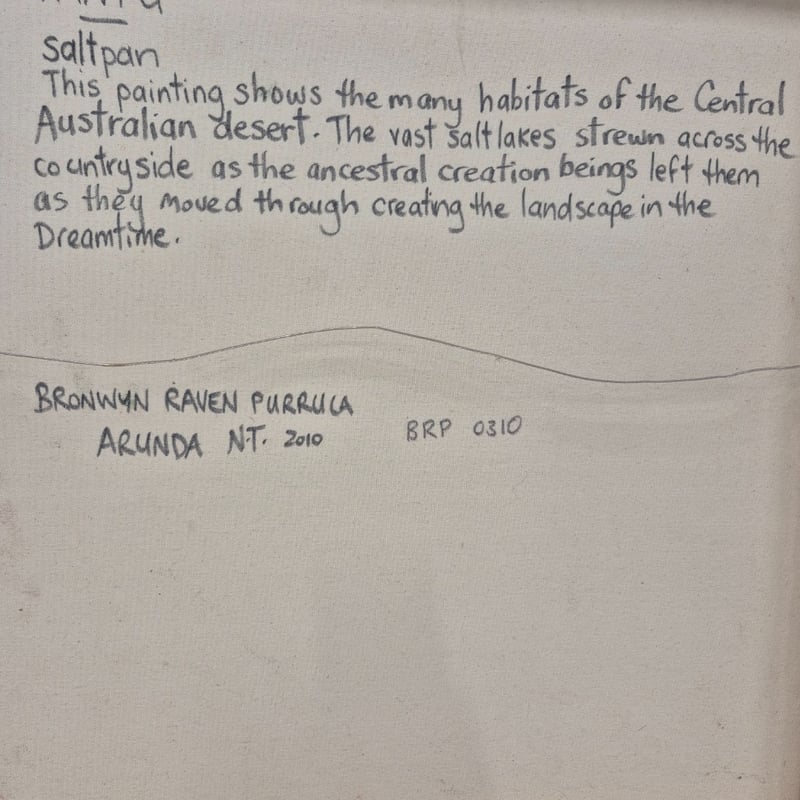 saltpan
This painting shows the many habitats of the Central
Australian desert. The vast saltlakes strewn across the
countryside as the ancestral creation beings left them
as they moved through creating the landscape in the
Dreamtime.
BRONWYN RAVEN PURRULA
ARUNDA N.T. 2010
BRP 0310